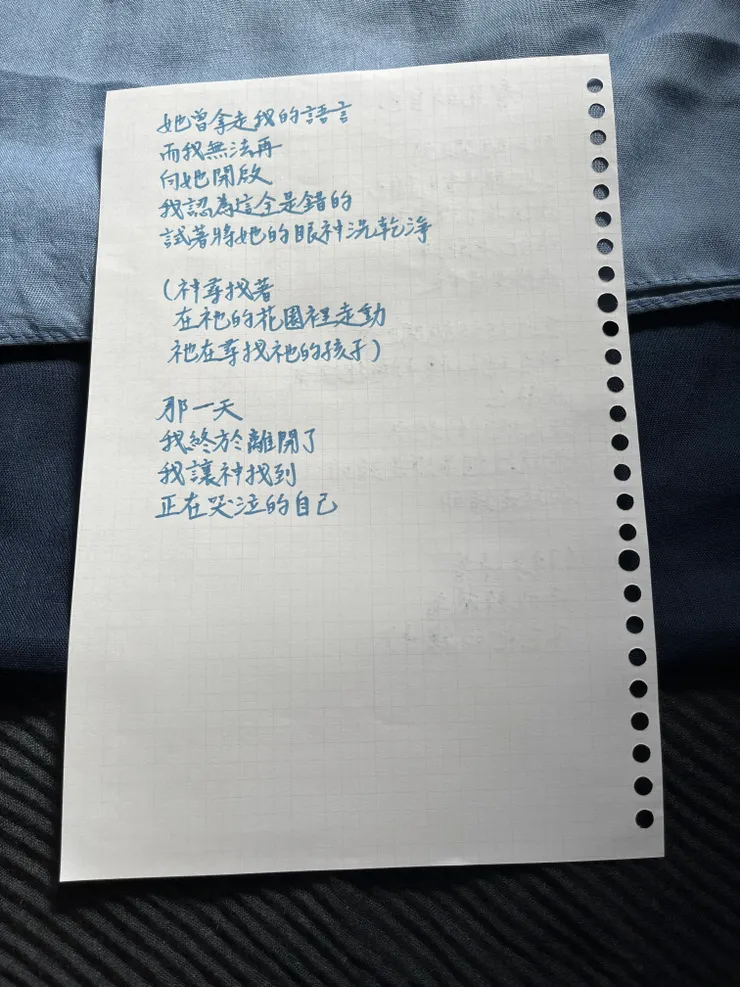 她曾拿走我的語言
而我無法再
向她開啟
我認為這全是錯的
試著將她的眼神洗乾淨
(神尋找著
在祂的花園裡走動
祂在尋找祂的孩子)
那一天
我終於離開了
我讓神找到
正在哭泣的自己